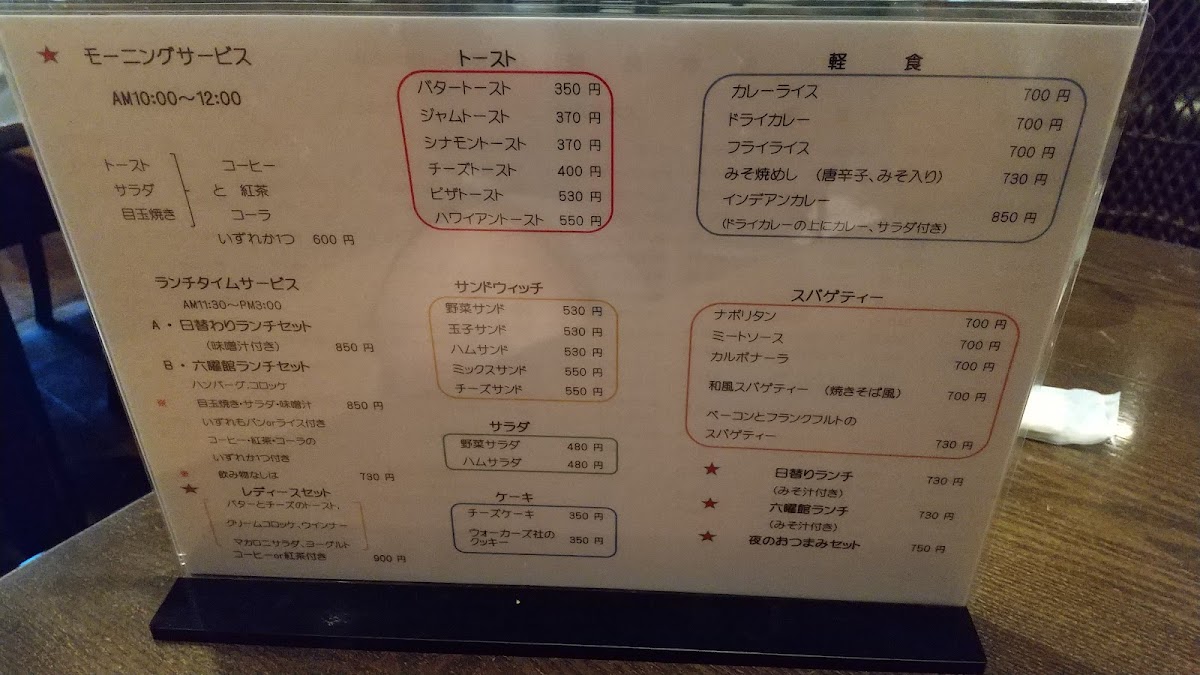 ★ モーニングサービス
AM10:00～12:00
トースト コーヒー
サラダ と 紅茶
目玉焼き コーラ
いずれか1つ 600 円
ランチタイムサービス
AM11:30～PM3:00
A・日替わりランチセット
(味噌汁付き) 850 円
B・六曜館ランチセット
ハンバーグ、コロッケ
※ 目玉焼き・サラダ・味噌汁 850 円
いずれもパンorライス付き
コーヒー・紅茶・コーラの
いずれか1つ付き
※ 飲み物なしは 730 円
★ レディースセット
バターとチーズのトースト、
クリームコロッケ、ウインナー
マカロニサラダ、ヨーグルト
コーヒーor紅茶付き 900 円
トースト
バタートースト 350 円
ジャムトースト 370 円
シナモントースト 370 円
チーズトースト 400 円
ピザトースト 530 円
ハワイアントースト 550 円
サンドウィッチ
野菜サンド 530 円
玉子サンド 530 円
ハムサンド 530 円
ミックスサンド 550 円
チーズサンド 550 円
サラダ
野菜サラダ 480 円
ハムサラダ 480 円
ケーキ
チーズケーキ 350 円
ウォーカーズ社の
クッキー 350 円
軽 食
カレーライス 700 円
ドライカレー 700 円
フライライス 700 円
みそ焼めし (唐辛子、みそ入り) 730 円
インデアンカレー
(ドライカレーの上にカレー、サラダ付き) 850 円
スパゲティー
ナポリタン 700 円
ミートソース 700 円
カルボナーラ 700 円
和風スパゲティー (焼きそば風) 700 円
ベーコンとフランクフルトの
スパゲティー 730 円
★ 日替りランチ 730 円
(みそ汁付き)
★ 六曜館ランチ 730 円
(みそ汁付き)
★ 夜のおつまみセット 750 円